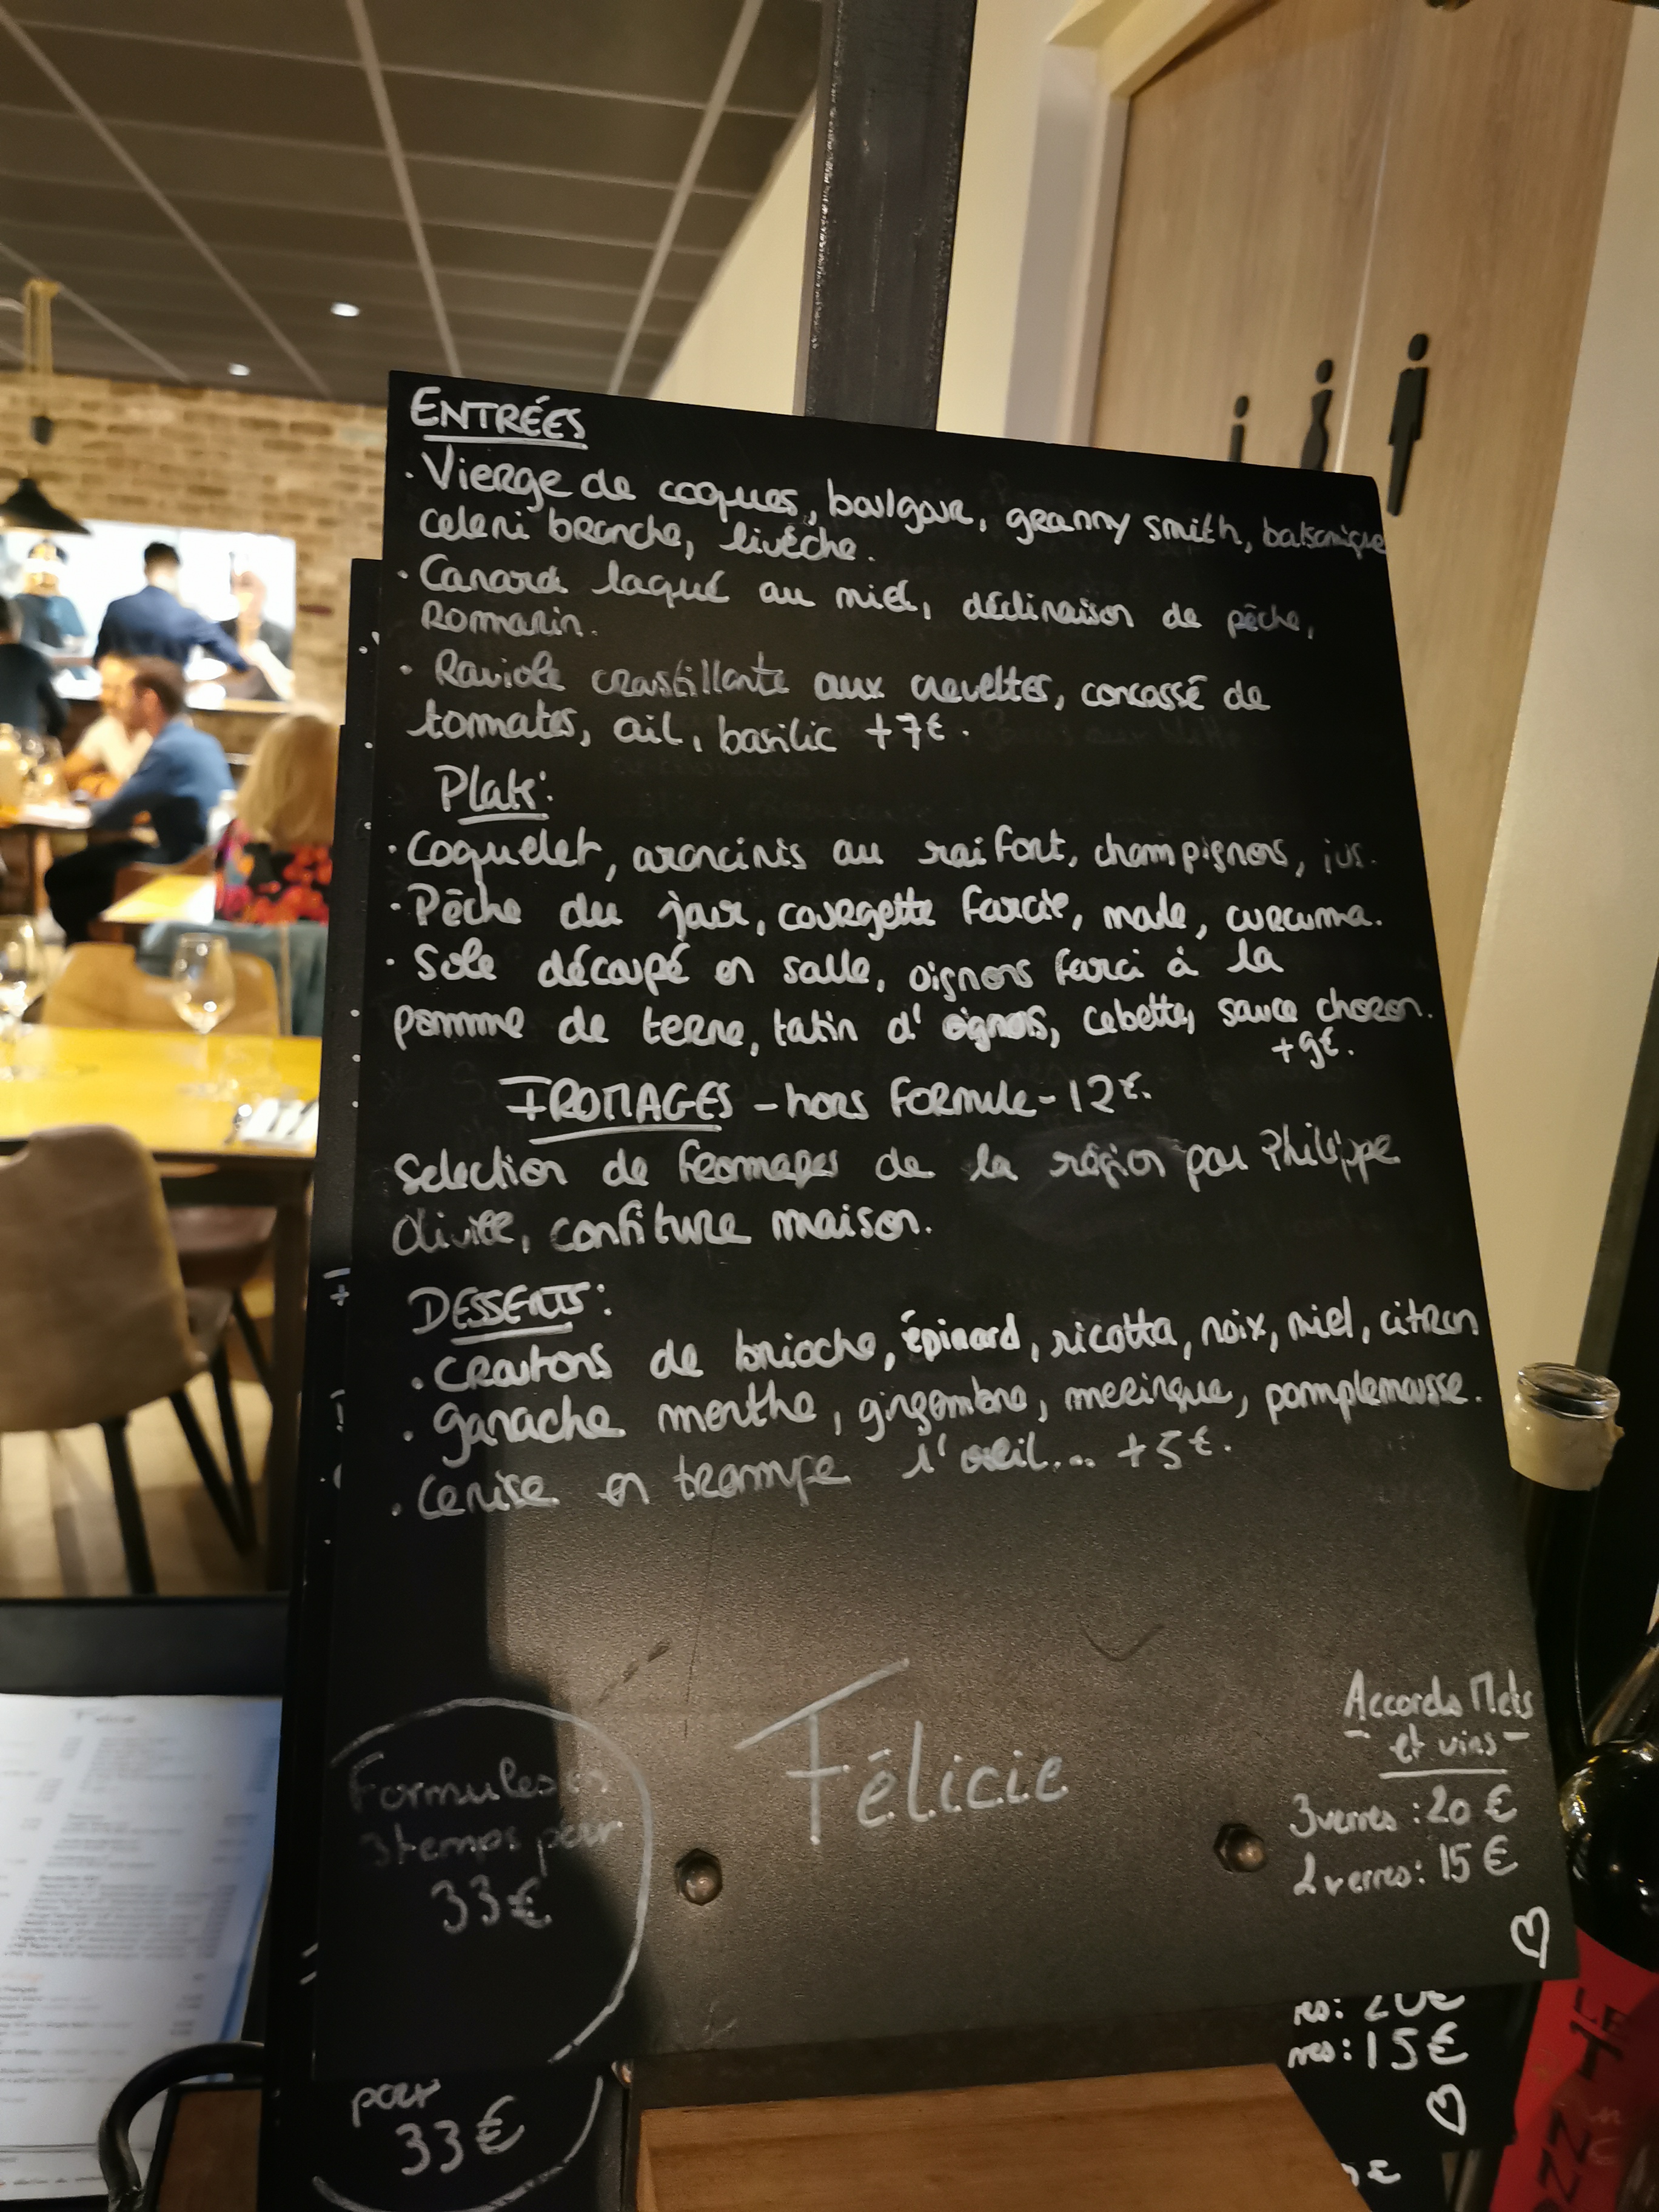 ENTRÉES
· Vierge de coques, boulgour, granny smith, balsamique
celeri branche, livèche.
· Canard laqué au miel, déclinaison de pêche,
Romarin.
· Raviole croustillante aux crevettes, concassé de
tommates, ail, basilic +7€.
Plats:
· Coquelet, arancinis au raifort, champignons, jus.
· Pêche du jour, courgette farcie, curcuma.
· Sole découpé en salle, oignons farci à la
pomme de terre, tatin d'oignons, cebette, sauce choron.
+9€.
FROMAGES - hors formule - 12€.
Selection de fromages de la région par Philippe
Olivier, confiture maison.
DESSERTS:
· croutons de brioche, épinard, ricotta, noix, miel, citron
· ganache menthe, gingembre, meringue, pomplemousse.
· Cerise en trompe l'œil... +5€.
Formules en
3 temps pour
33€
Félicie
Accords Mets
- et vins -
3 verres : 20 €
2 verres : 15 €
res: 20€
res: 15€
pour
33€
LE